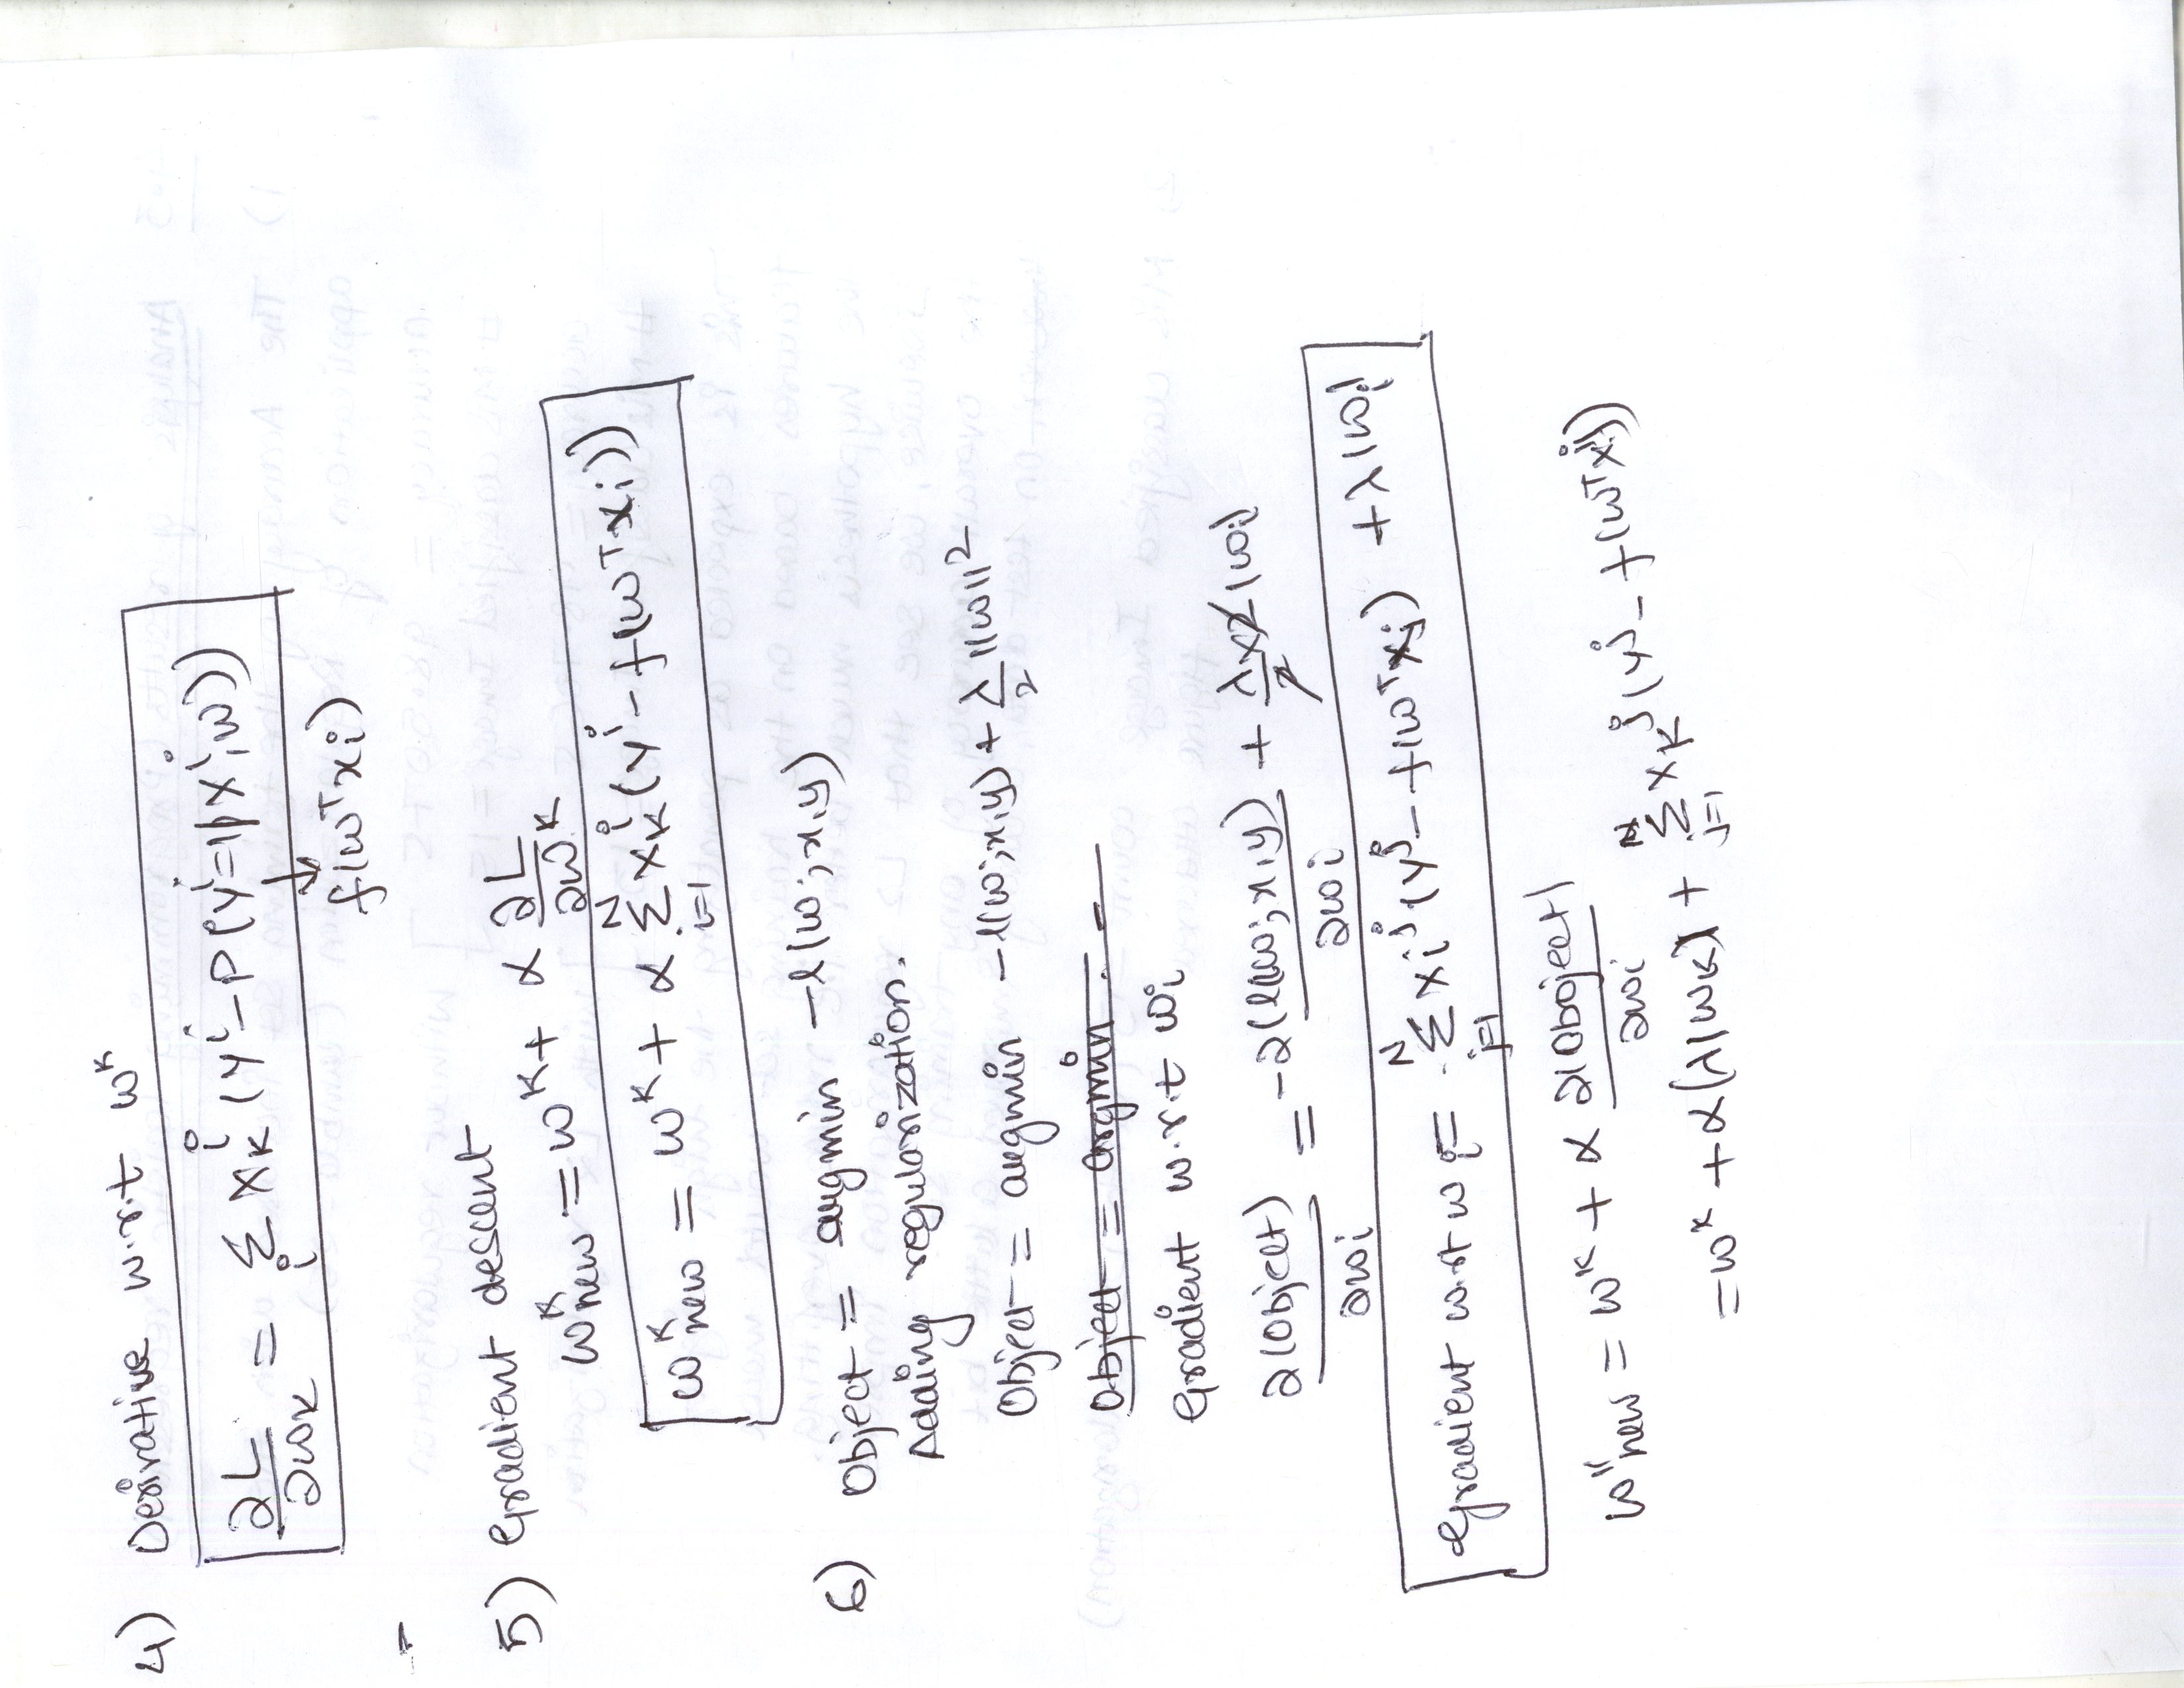 4) Derivative w.r.t w^k
∂L/∂w^k = Σ_i x_k^i (y^i - P(y^i=1|x^i,w))
↓
f(w^T x_i)
5) Gradient descent
w^k_new = w^k + α ∂L/∂w^k
w^k_new = w^k + α Σ_{i=1}^N x_k^i (y^i - f(w^T x_i))
6) Object = argmin -l(w; x,y)
Adding regularization.
Object = argmin -l(w; x,y) + λ/2 ||w||²
Object = argmin -
Gradient w.r.t w_i
∂(object)/∂w_i = -∂(l(w; x,y))/∂w_i + λ×2/2 |w_i|
Gradient w.r.t w_i = - Σ_{j=1}^N x_i^j (y^j - f(w^T x_j)) + λ|w_i|
w^k_new = w^k + α ∂(object)/∂w_i
= w^k + α(λ|w_k|) + Σ_{j=1}^N x_k^j (y^j - f(w^T x^j))